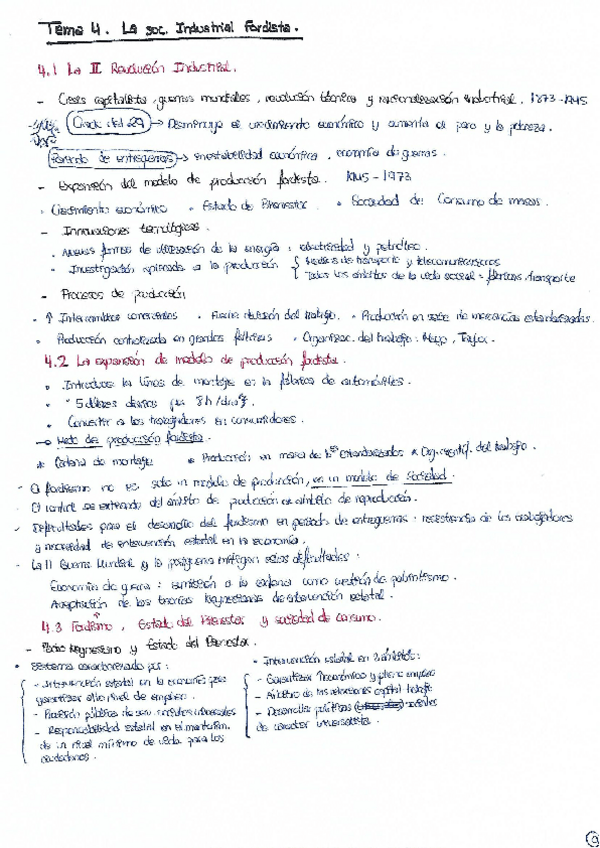 Tema 4. La soc. Industrial Fordista.
4.1 La II Revolución Industrial.
- Crisis capitalista, guerras mundiales, revolución técnica y racionalización industrial. 1873-1945
Crack del 29 → Disminuye el crecimiento económico y aumenta el paro y la pobreza.
Periodo de entreguerras → inestabilidad económica, economía de guerras.
- Expansión del modelo de producción fordista. 1945-1973
· Crecimiento económico · Estado de Bienestar · Sociedad de Consumo de masas.
- Innovaciones tecnológicas.
· Nuevas formas de utilización de la energía: electricidad y petróleo.
- Investigación aplicada a la producción { de transporte y telecomunicaciones
Todos los ámbitos de la vida social: fábricas, transporte
- Procesos de producción
· ↑ Intercambios comerciales · división del trabajo. · Producción en serie de mercancías estandarizadas.
· Producción controlada en grandes fábricas · Organizac. del trabajo: Mayo, Taylor.
4.2 La expansión de modelo de producción fordista.
· Introduce la línea de montaje en la fábrica de automóviles.
· "5 dólares diarios por 8h/día".
· Convertir a los trabajadores en consumidores.
→ Modo de producción fordista.
* Cadena de montaje * Producción en masa de estandarizados * Org. científ. del trabajo.
- El fordismo no es solo un modelo de producción, es un modelo de sociedad.
- El control se extiende del ámbito de producción al ámbito de reproducción.
- Dificultades para el desarrollo del fordismo en periodo de entreguerras: resistencia de los trabajadores
a necesidad de intervención estatal en la economía.
- La II Guerra Mundial y la posguerra mitigan estas dificultades:
Economía de guerra: sumisión a la cadena como cuestión de patriotismo.
Aceptación de las teorías Keynesianas de intervención estatal.
4.3 Fordismo, Estado del Bienestar y sociedad de consumo.
- Pacto Keynesiano y Estado del Bienestar.
· Sistema caracterizado por:
- Intervención estatal en la economía para
garantizar alto nivel de empleo.
- Provisión pública de serv. sociales universales
- Responsabilidad estatal en el mantenim.
de un nivel mínimo de vida para los
ciudadanos.
- Intervención estatal en 3 ámbitos:
- Garantizar económico y pleno empleo
- Ámbito de las relaciones capital trabajo
- Desarrollar políticas sociales
de carácter universalista.